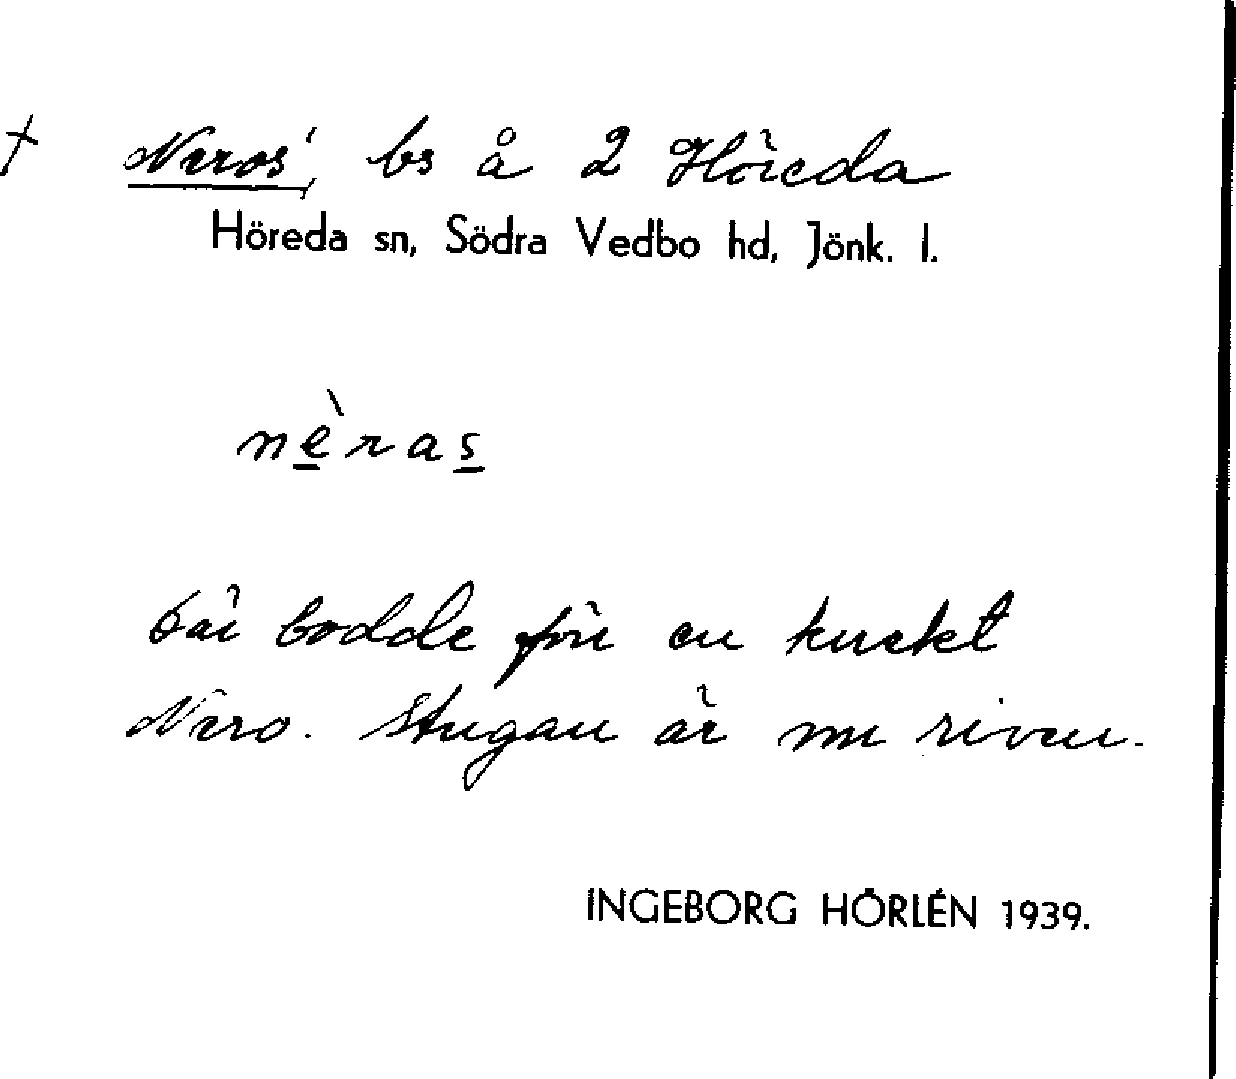 † Neros', bs å 2 Höreda
Höreda sn, Södra Vedbo hd, Jönk. l.
nèras
Där bodde förr en knekt
Nero. Stugan är nu riven.
INGEBORG HÖRLÉN 1939.